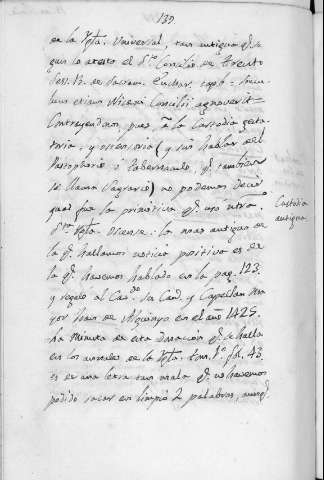 139.
en la Ygta. Universal, tan antigua q.e se-
gun lo atesta el S.to Concilio de Trento
Sess. 13. de Sacram. Euchar. cap. 6 = Saecu-
lum etiam Niceni Concilii agnoverit =
Contrayendonos, pues, a la Custodia gesta-
toria, y ostensoria (y sin hablar del
Pastophorio o Tabernaculo, q.e tambien
se llama Sagrario) no podemos decir
qual fue la primitiva q.e uso ntra.
S.ta Ygta. Vicense: la mas antigua de
la q.e hallamos noticia positiva es de
la q.e havemos hablado en la pag. 123.
y regalo al Cav.do la Can.a y Capellan Ma-
yor Juan de en el año 1425.
ha minuta de esta donacion q.e se halla
en los annales de la Ygta. tom. 1.o fol. 43.
es de una letra tan mala q.e no havemos
podido sacar en limpio 2 palabras, aunq.e
Custodia
antigua